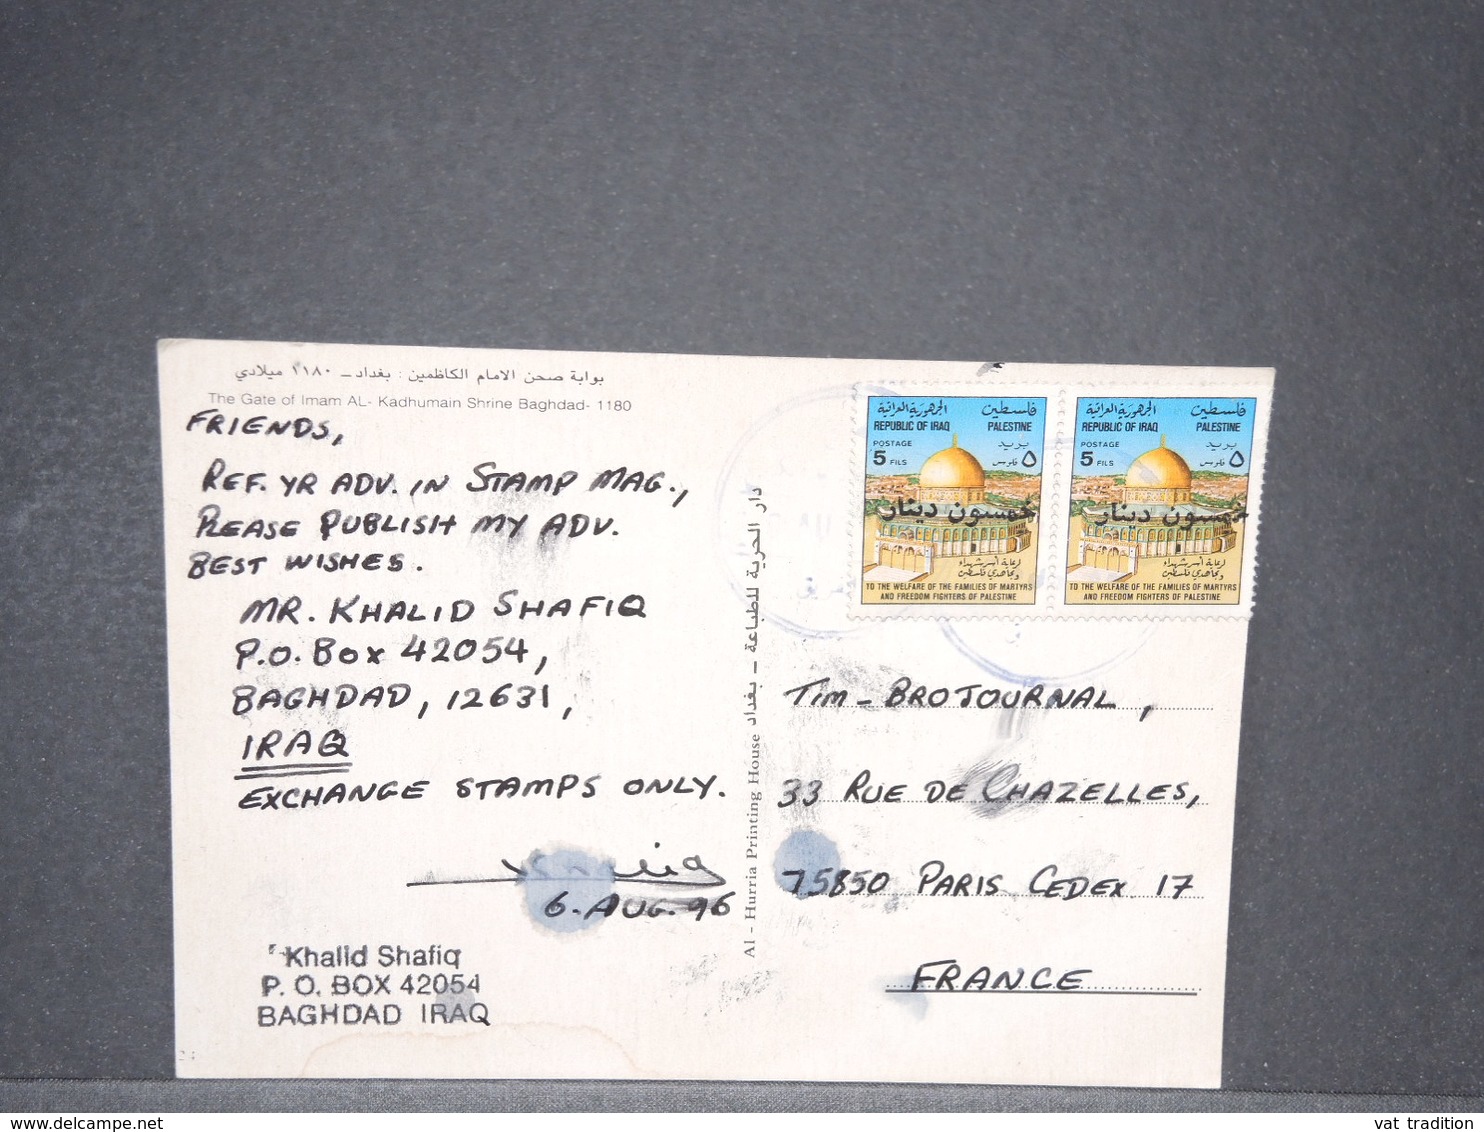 بوابة صحن الامام الكاظمين : بغداد ــ ١١٨٠ ميلادي
The Gate of Imam AL- Kadhumain Shrine Baghdad- 1180
FRIENDS,
REF. YR ADV. IN STAMP MAG.,
PLEASE PUBLISH MY ADV.
BEST WISHES.
MR. KHALID SHAFIQ
P.O. BOX 42054,
BAGHDAD, 12631,
IRAQ
EXCHANGE STAMPS ONLY.
6. AUG. 96
Khalid Shafiq
P. O. BOX 42054
BAGHDAD IRAQ
Al - Hurria Printing House دار الحرية للطباعة - بغداد
الجمهورية العراقية فلسطين
REPUBLIC OF IRAQ PALESTINE
POSTAGE بريد
5 FILS ٥ فلوس
خمسون دينار
لرعاية أسر شهداء
ومجاهدي فلسطين
TO THE WELFARE OF THE FAMILIES OF MARTYRS
AND FREEDOM FIGHTERS OF PALESTINE
الجمهورية العراقية فلسطين
REPUBLIC OF IRAQ PALESTINE
POSTAGE بريد
5 FILS ٥ فلوس
خمسون دينار
لرعاية أسر شهداء
ومجاهدي فلسطين
TO THE WELFARE OF THE FAMILIES OF MARTYRS
AND FREEDOM FIGHTERS OF PALESTINE
TIM - BROJOURNAL,
33 RUE DE CHAZELLES,
75850 PARIS CEDEX 17
FRANCE
delcampe.net
vat tradition